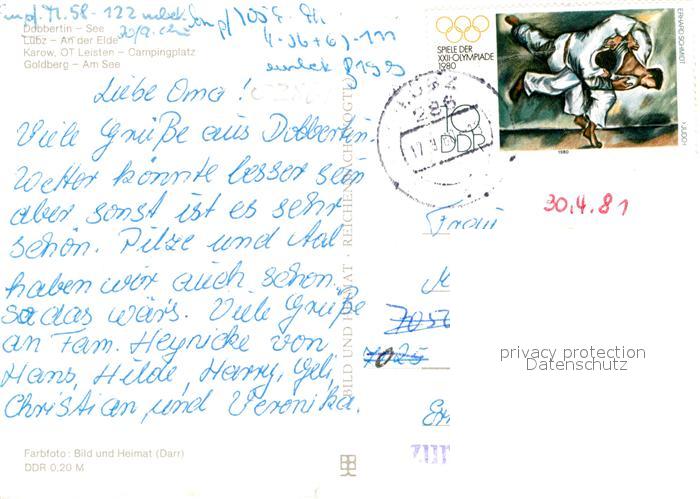 Dobbertin – See
Lübz – An der Elde
Karow, OT Leisten – Campingplatz
Goldberg – Am See
Liebe Oma!
Viele Grüße aus Dobbertin
Wetter könnte besser sein
aber sonst ist es sehr
schön. Pilze und Aal
haben wir auch schon.
So das wär's. Viele Grüße
an Fam. Heynicke von
Hans, Hilde, Harry, Geli,
Christian, und Veronika.
Farbfoto: Bild und Heimat (Darr)
DDR 0,20 M
BILD UND HEIMAT · REICHENBACH (VOGTL)
SPIELE DER
XXII. OLYMPIADE
1980
10
DDR
ERHARD SCHMIDT
1980
LÜBZ
286
30.4.81
Frau
7050
7025
zur
privacy protection
Datenschutz